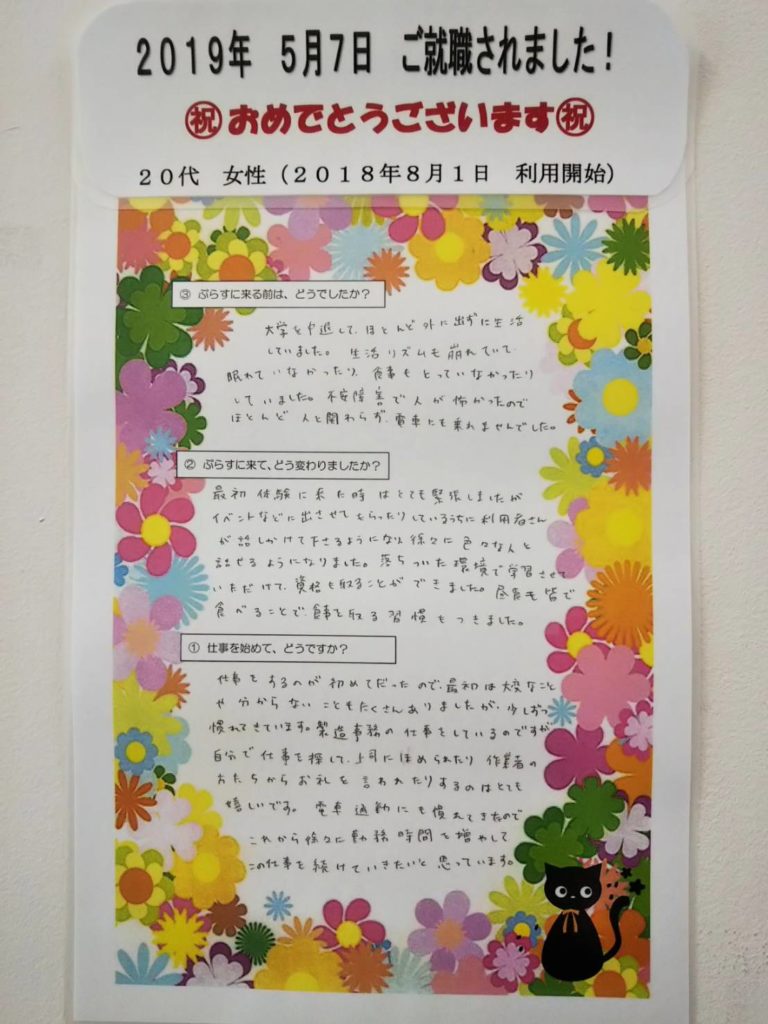 2019年 5月7日 ご就職されました!
㊗おめでとうございます㊗
20代 女性(2018年8月1日 利用開始)
③ ぷらすに来る前は、どうでしたか?
大学を中退して、ほとんど外に出ずに生活
していました。生活リズムも崩れていて、
眠れていなかったり、食事もとっていなかったり
していました。不安障害で人が怖かったので
ほとんど人と関わらず、電車にも乗れませんでした。
② ぷらすに来て、どう変わりましたか?
最初体験に来た時はとても緊張しましたが
イベントなどに出させてもらったりしているうちに利用者さん
が話しかけて下さるようになり、徐々に色々な人と
話せるようになりました。落ちついた環境で学習させて
いただけて、資格も取ることができました。昼食も皆で
食べることで、食事を取る習慣もつきました。
① 仕事を始めて、どうですか?
仕事をするのが初めてだったので、最初は大変なこと
や分からないこともたくさんありましたが、少しずつ
慣れてきています。製造事務の仕事をしているのですが
自分で仕事を探して、上司にほめられたり作業者の
方たちからお礼を言われたりするのはとても
嬉しいです。電車通勤にも慣れてきたので
これから徐々に勤務時間を増やして
この仕事を続けていきたいと思っています。